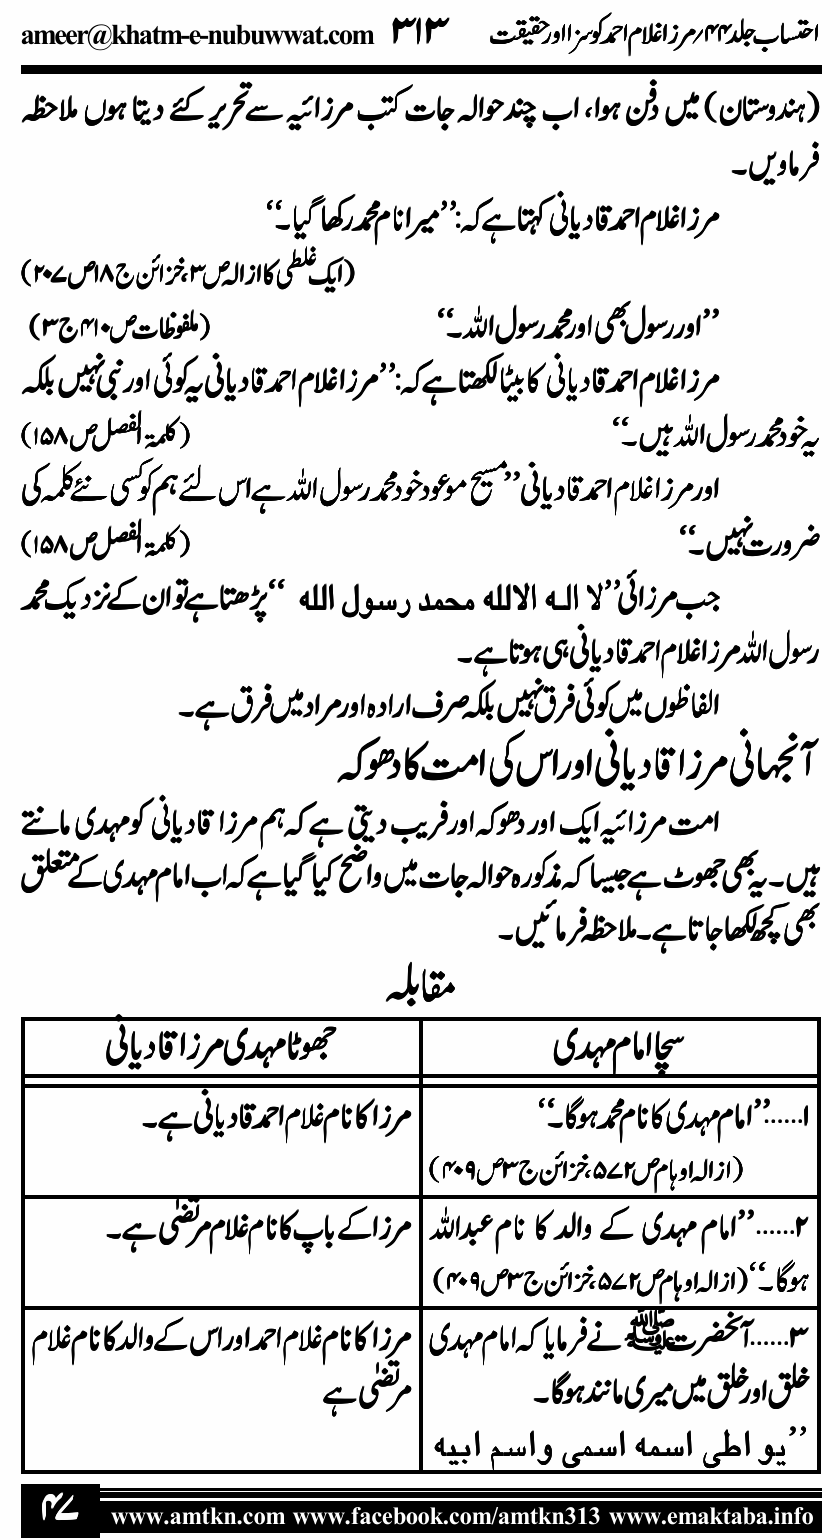 احتساب جلد ۴۴؍مرزا غلام احمد کو سزا اور حقیقت ۳۱۳ ameer@khatm-e-nubuwwat.com
(ہندوستان) میں دفن ہوا، اب چند حوالہ جات کتب مرزائیہ سے تحریر کئے دیتا ہوں ملاحظہ
فرماویں۔
مرزا غلام احمد قادیانی کہتا ہے کہ: ’’میرا نام محمد رکھا گیا۔‘‘
(ایک غلطی کا ازالہ ص۳، خزائن ج۱۸ ص۲۰۷)
’’اور رسول بھی اور محمد رسول اللہ۔‘‘ (ملفوظات ص۴۱۰ ج۳)
مرزا غلام احمد قادیانی کا بیٹا لکھتا ہے کہ: ’’مرزا غلام احمد قادیانی یہ کوئی اور نبی نہیں بلکہ
یہ خود محمد رسول اللہ ہیں۔‘‘ (کلمۃ الفصل ص۱۵۸)
اور مرزا غلام احمد قادیانی ’’مسیح موعود خود محمد رسول اللہ ہے اس لئے ہم کو کسی نئے کلمہ کی
ضرورت نہیں۔‘‘ (کلمۃ الفصل ص۱۵۸)
جب مرزائی ’’لا الہ الاللہ محمد رسول اللہ ‘‘پڑھتا ہے تو ان کے نزدیک محمد
رسول اللہ مرزا غلام احمد قادیانی ہی ہوتا ہے۔
الفاظوں میں کوئی فرق نہیں بلکہ صرف ارادہ اور مراد میں فرق ہے۔
آنجہانی مرزا قادیانی اور اس کی امت کا دھوکہ
امت مرزائیہ ایک اور دھوکہ اور فریب دیتی ہے کہ ہم مرزا قادیانی کو مہدی مانتے
ہیں۔ یہ بھی جھوٹ ہے جیسا کہ مذکورہ حوالہ جات میں واضح کیا گیا ہے کہ اب امام مہدی کے متعلق
بھی کچھ لکھا جاتا ہے۔ ملاحظہ فرمائیں۔
مقابلہ
سچا امام مہدی جھوٹا مہدی مرزا قادیانی
۱......’’امام مہدی کا نام محمد ہوگا۔‘‘ مرزا کا نام غلام احمد قادیانی ہے۔
(ازالہ اوہام ص۵۷۲، خزائن ج۳ ص۴۰۹)
۲......’’امام مہدی کے والد کا نام عبداللہ مرزا کے باپ کا نام غلام مرتضیٰ ہے۔
ہوگا۔‘‘ (ازالہ اوہام ص۵۷۲، خزائن ج۳ ص۴۰۹)
۳......آنحضرت ﷺ نے فرمایا کہ امام مہدی مرزا کا نام غلام احمد اور اس کے والد کا نام غلام
خلق اور خلق میں میری مانند ہوگا۔ مرتضیٰ ہے
’’یو اطی اسمہ اسمی واسم ابیہ
۴۷ www.amtkn.com www.facebook.com/amtkn313 www.emaktaba.info